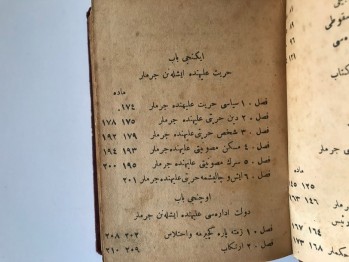 ایكنجی باب
حریت علیهنده ایشله‌نن جرملر
ماده
فصل ۰ ۱ سیاسی حریت علیهنده جرملر ۱۷۴
فصل ۰ ۲ دین حریتی علیهنده جرملر ۱۷۵ ۱۷۸
فصل ۰ ۳ شخص حریتی علیهنده جرملر ۱۷۹ ۱۹۲
فصل ۰ ۴ مسكن مصونیتی علیهنده جرملر ۱۹۳ ۱۹۴
فصل ۰ ۵ سرك مصونیتی علیهنده جرملر ۱۹۵ ۲۰۰
فصل ۰ ۶ ایش و چالیشمه حریتی علیهنده جرملر ۲۰۱
اوچنجی باب
دولت اداره‌سی علیهنده ایشله‌نن جرملر
فصل ۰ ۱ ذمته پاره كچیرمه و اختلاس ۲۰۲ ۲۰۸
فصل ۰ ۲ ارتكاب ۲۰۹ ۲۱۰